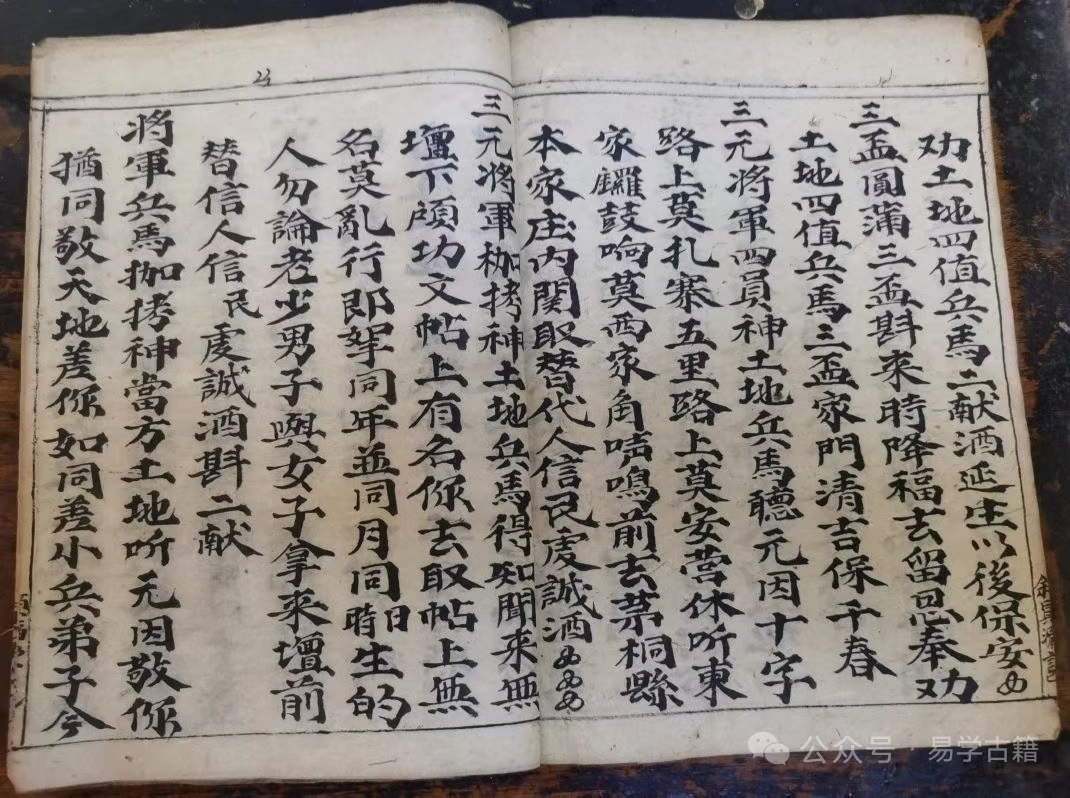 劝土地四值兵馬二献酒延生以後保安
三盃圓蒲三盃斟来時降福去留恩奉劝
土地四值兵馬三盃家門清吉保千春
三元将軍四員神土地兵馬聽元因十字
路上莫扎寨五里路上莫安营休听東
家鑼鼓响莫西家角啨鳴前去某桐縣
本家庄内関取替代人信民虔誠酒
三元將軍枷拷神土地兵馬得知聞来無
壇下頒功文帖上有名你去取帖上無
名莫亂行郎拏同年並同月同日時生的
人勿論老少男子與女子拿来壇前
替信人信民虔誠酒斟二献
將軍兵馬枷拷神當方土地听元因敬你
猶同敬天地差你如同差小兵弟子今
公众号·易学古籍